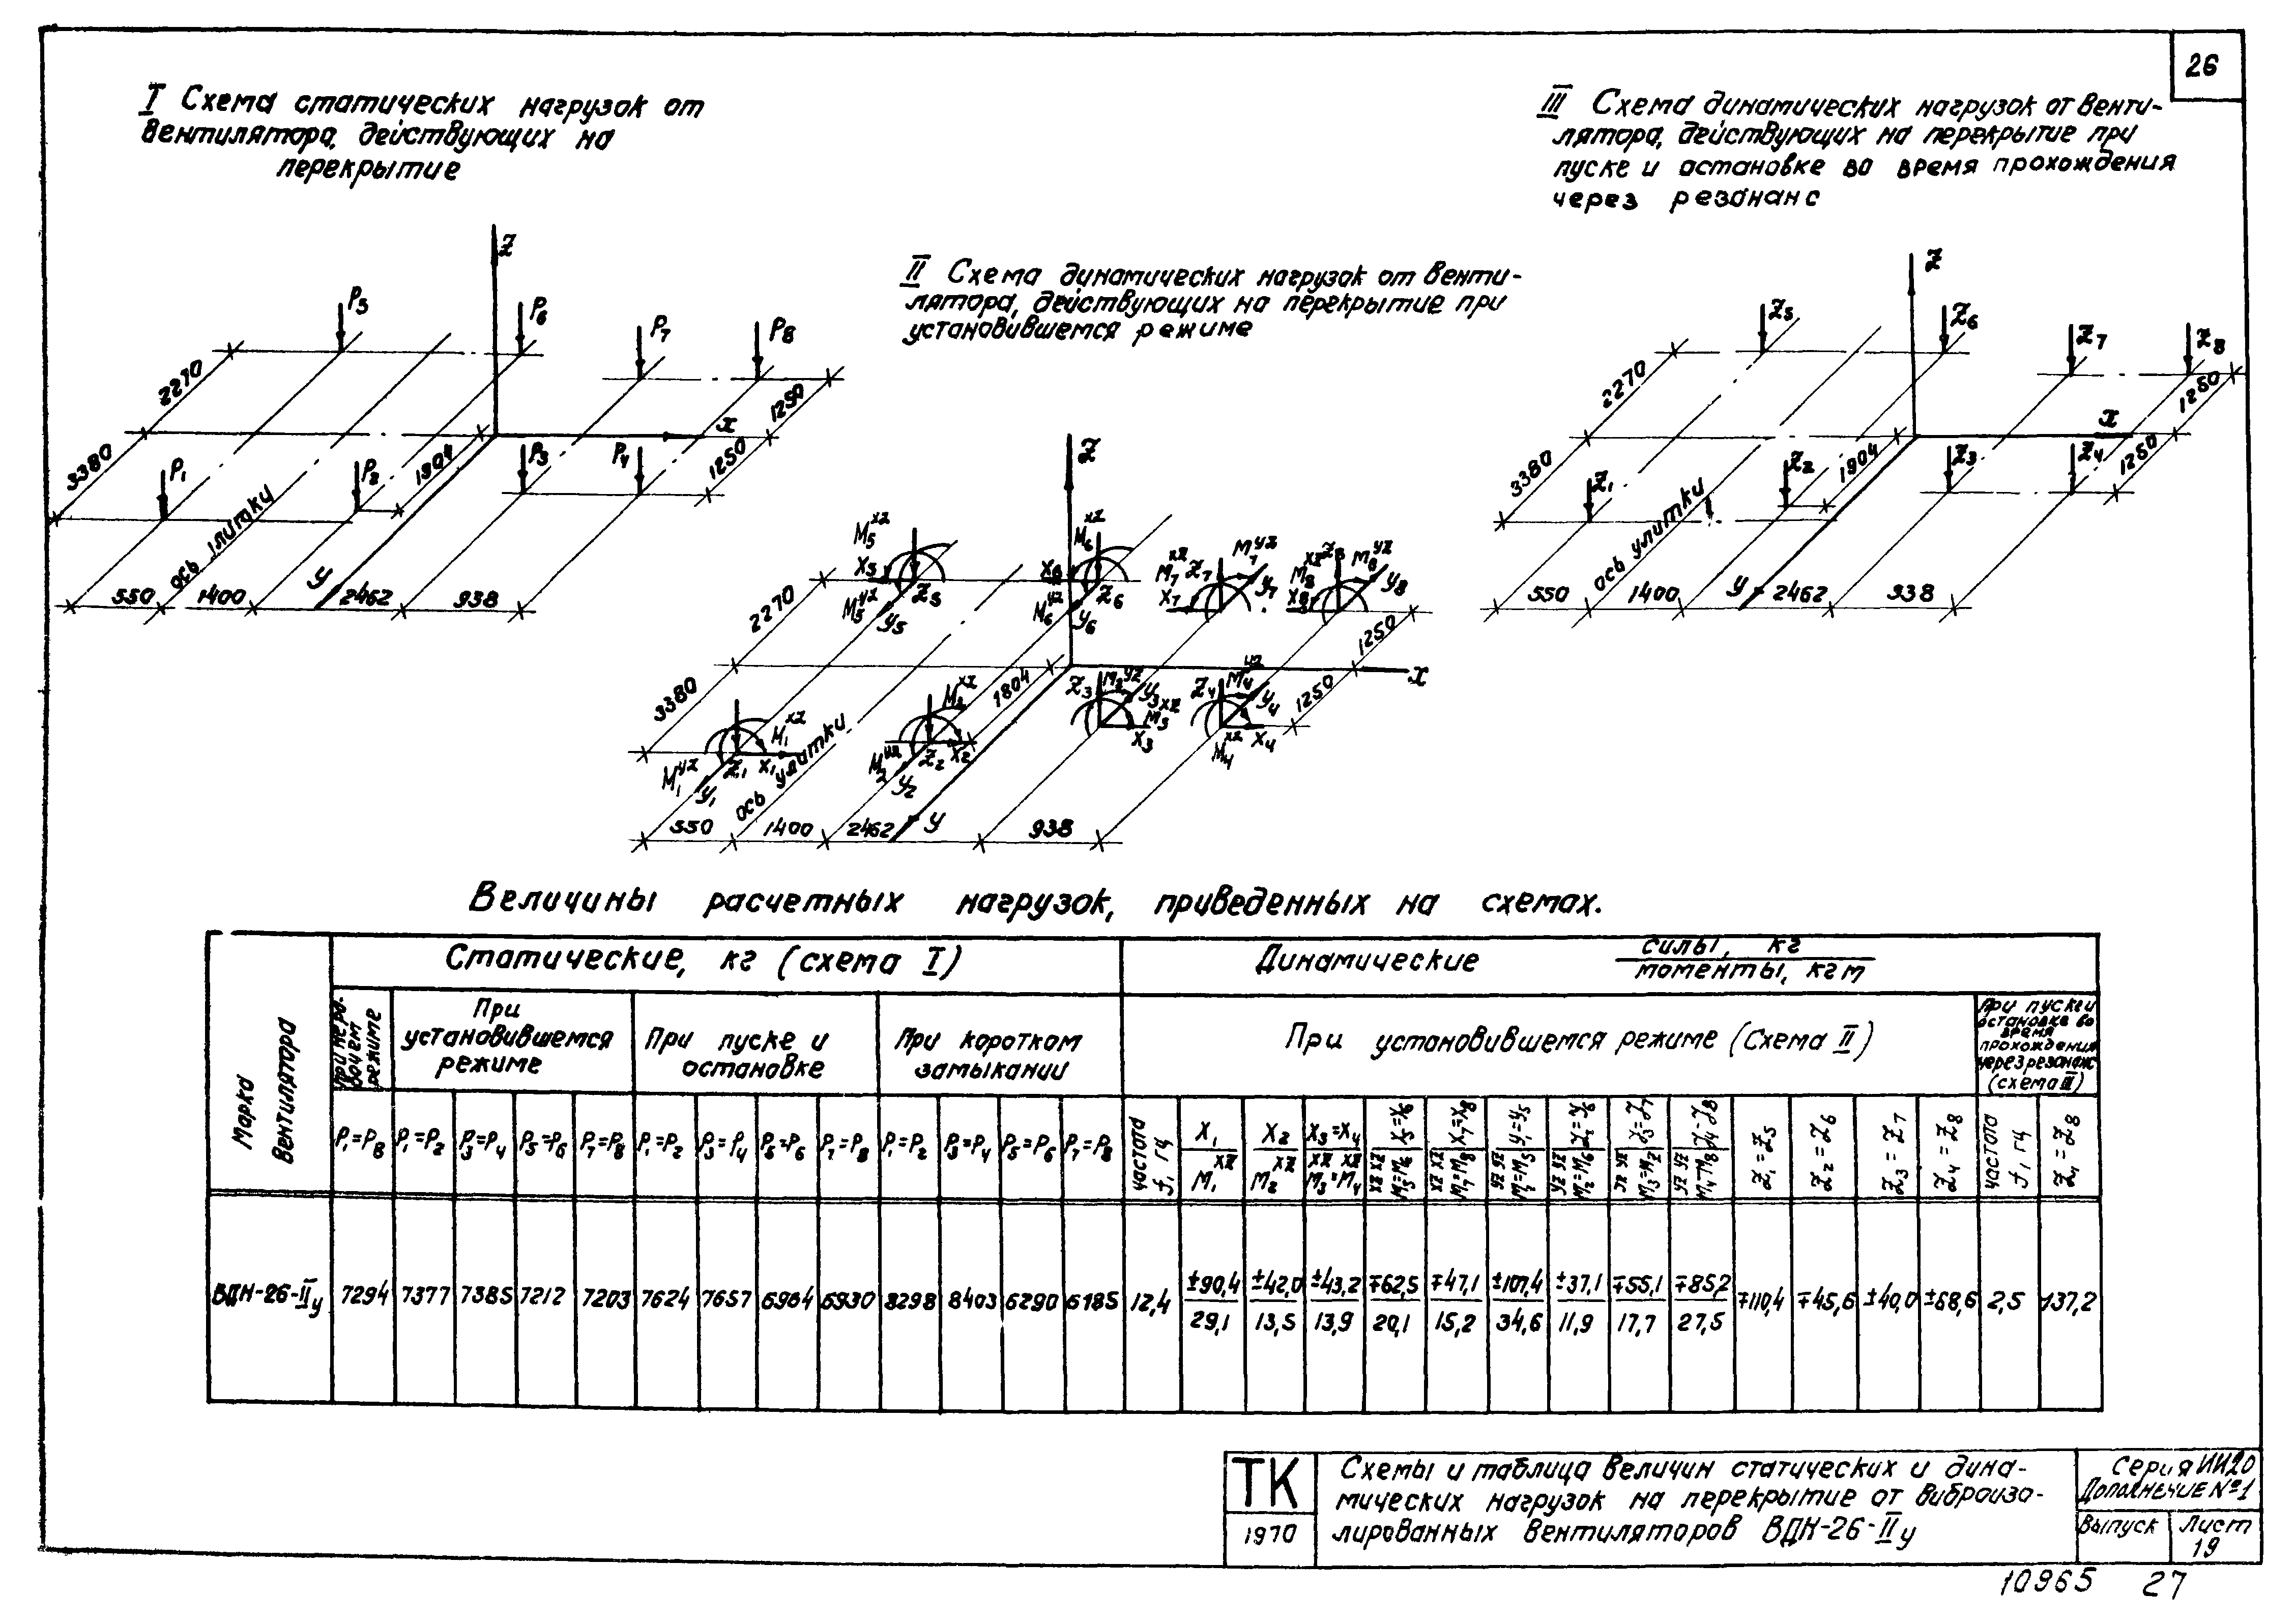 26
I Схема статических нагрузок от
вентилятора, действующих на
перекрытие
III Схема динамических нагрузок от венти-
лятора, действующих на перекрытие при
пуске и остановке во время прохождения
через резонанс
II Схема динамических нагрузок от венти-
лятора, действующих на перекрытие при
установившемся режиме
Z
P5
P6
P7
P8
2270
1250
x
3380
P1
P2
1904
P3
P4
1250
ось улитки
y
550 1400 2462 938
Z
Z5
Z6
Z7
Z8
2270
1250
x
3380
Z1
Z2
1904
Z3
Z4
1250
ось улитки
y
550 1400 2462 938
Z
M5 xz
X5
Z5
M5 yz
y5
M6 xz
X6
Z6
M6 yz
y6
M7 xz
Z7
M7 yz
X7
y7
M8 xz
Z8
M8 yz
X8
y8
2270
1250
x
3380
1804
Z3
y3
M3 xz
X3
Z4
M4 yz
y4
M4 xz
X4
1250
M1 xz
M1 yz
Z1
X1
y1
M2 xz
M2 yz
Z2
X2
y2
ось улитки
y
550 1400 2462 938
Величины расчетных нагрузок, приведенных на схемах.
Марка вентилятора
Статические, кг (схема I)
Динамические силы, кг / моменты, кгм
При нерабочем режиме
При установившемся режиме
При пуске и остановке
При коротком замыкании
При установившемся режиме (Схема II)
При пуске и остановке во время прохождения через резонанс (схема III)
P1=P8 P1=P2 P3=P4 P5=P6 P7=P8 P1=P2 P3=P4 P5=P6 P7=P8 P1=P2 P3=P4 P5=P6 P7=P8
частота f, гц
X1 / M1 xz
X2 / M2 xz
X3=X4 / M3 xz=M4 xz
X5=X6 / M5 xz=M6 xz
X7=X8 / M7 xz=M8 xz
y1=y5 / M1 yz=M5 yz
y2=y6 / M2 yz=M6 yz
Z1=Z5
Z2=Z6
Z3=Z7
Z4=Z8
частота f, гц
Z1=Z8
ВДН-26-IIу 7294 7377 7385 7212 7203 7624 7657 6964 6930 8298 8403 6290 6185 12,4 ±90,4/29,1 ±42,0/13,5 ±43,2/13,9 ∓62,5/20,1 ∓47,1/15,2 ±107,4/34,6 ±37,1/11,9 ∓55,1/17,7 ∓85,2/27,5 ∓110,4 ∓45,6 ±40,0 ±68,6 2,5 137,2
ТК
1970
Схемы и таблица величин статических и дина-
мических нагрузок на перекрытие от виброизо-
лированных вентиляторов ВДН-26-IIу
Серия ИИ20
Дополнение №1
Выпуск
Лист
19
10965 27